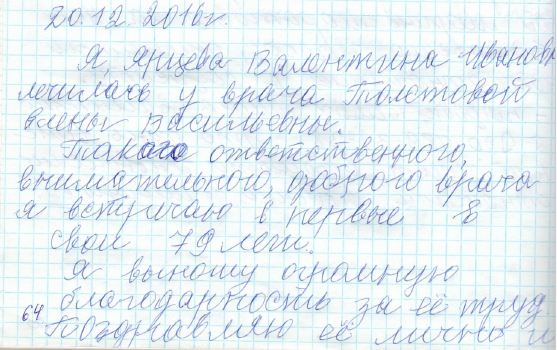 20.12.2016г.
Я, Янцева Валентина Ивановн
лечилась у врача Толстовой
Елены Васильевны.
Такого ответственного,
внимательного, доброго врача
я встречаю в первые в
свои 79 лет.
Я выношу огромную
благодарность за её труд
64 Поздравляю её лично и